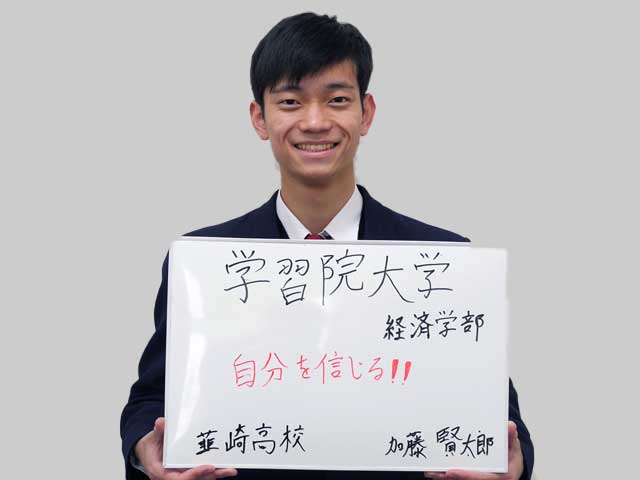 学習院大学
経済学部
自分を信じる!!
韮崎高校 加藤 賢太郎